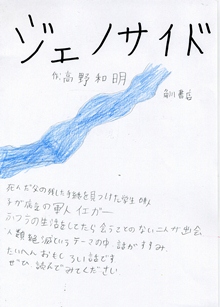 ジェノサイド
作 高野和明
角川書店
死んだ父の残した手紙を見つけた学生
子が病気の軍人イエーガー
ふつうの生活をしてたら会うことのない二人が出会
人類絶滅というテーマの中 話がすすみ
たいへんおもしろい話です
ぜひ読んでみてください